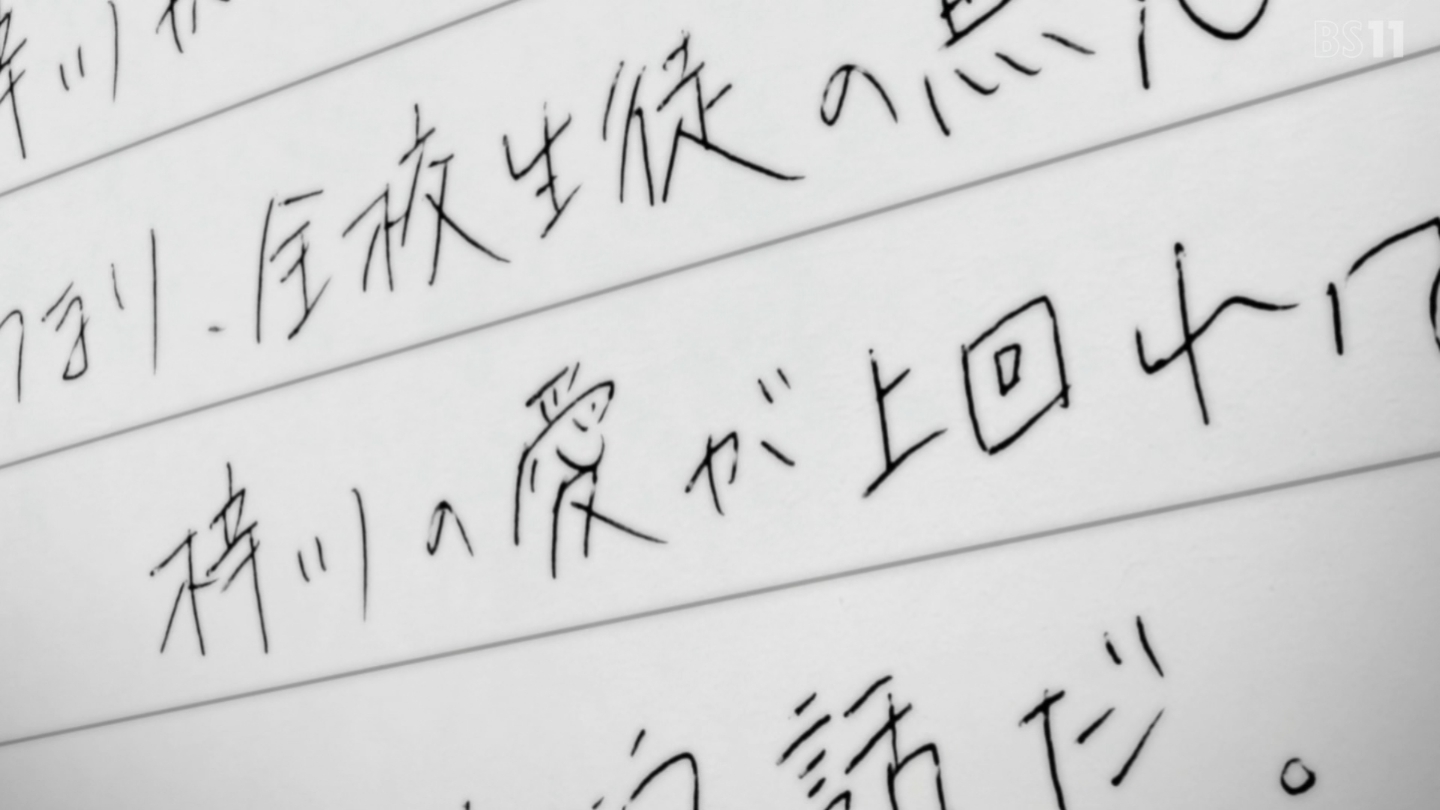 BS11
梓川
つまり、全校生徒の無
梓川の愛が上回れ
う話だ。